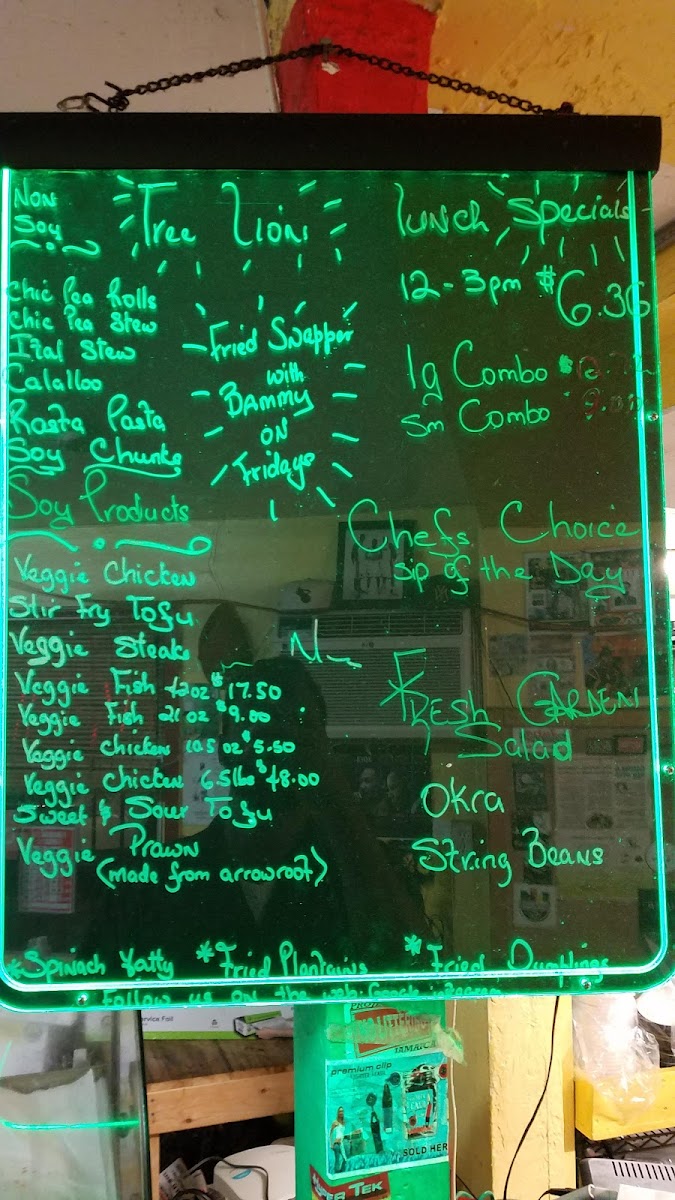 Non
Soy
Tree Lion
Chic Pea Rolls
Chic Pea Stew
Ital Stew
Calalloo
Rasta Pasta
Soy Chunks
Soy Products
Veggie Chicken
Stir Fry Tofu
Veggie Steaks
Veggie Fish 42oz $17.50
Veggie Fish 21oz $9.00
Veggie chicken 10.5 oz $5.50
Veggie Chicken 6.5lbs $48.00
Sweet & Sour Tofu
Veggie Prawn
(made from arrowroot)
Fried Snapper
with
Bammy
on
Fridays
Lunch Specials
12-3pm $6.36
lg Combo
Sm Combo
Chefs Choice
Sip of the Day
Fresh Garden
Salad
Okra
String Beans
*Spinach Patty *Fried Plantains *Fried Dumplings
Follow us on the web:
JAMAICA
premium clip
SOLD HER
TER TEK